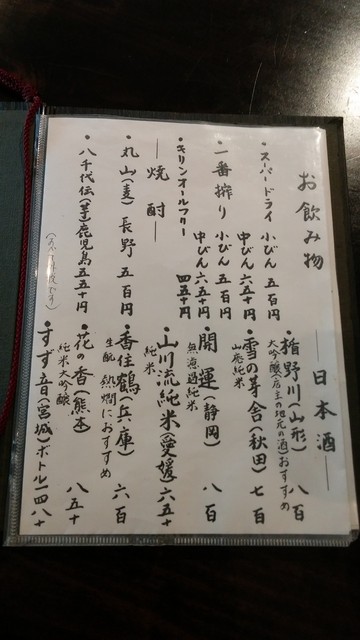 お飲み物
・スーパードライ 小びん 五百円
中びん 六五十円
・一番搾り 小びん 五百円
中びん 六五十円
・キリンオールフリー 四五十円
―焼酎―
・丸山(麦)長野 五百円
・八千代伝(芋)鹿児島 五五十円
―日本酒―
・楯野川(山形) 八百
大吟醸 店主の地元の酒 おすすめ
・雪の茅舎(秋田) 七百
山廃純米
・開運(静岡) 八百
無濾過純米
・山川流純米(愛媛) 六五十
純米
・香住鶴(兵庫) 六百
生酛 熱燗におすすめ
・花の香(熊本) 八五十
純米大吟醸
・すず音(宮城)ボトル一四八十